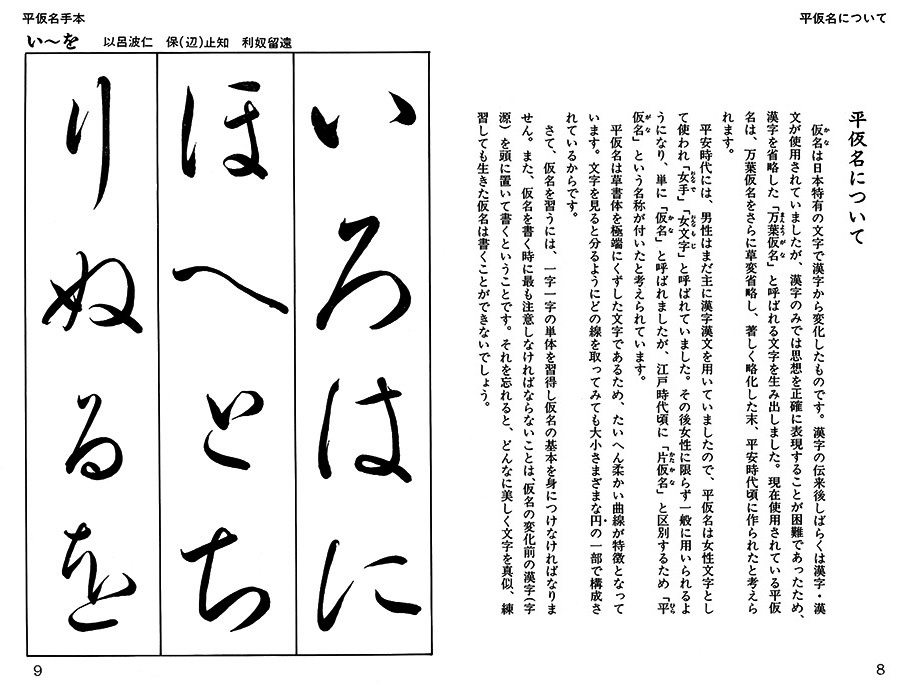 平仮名について
平仮名について
仮名は日本特有の文字で漢字から変化したものです。漢字の伝来後しばらくは漢字・漢
文が使用されていましたが、漢字のみでは思想を正確に表現することが困難であったため、
漢字を省略した「万葉仮名」と呼ばれる文字を生み出しました。現在使用されている平仮
名は、万葉仮名をさらに草変省略し、著しく略化した末、平安時代頃に作られたと考えら
れます。
平安時代には、男性はまだ主に漢字漢文を用いていましたので、平仮名は女性文字とし
て使われ「女手」「女文字」と呼ばれていました。その後女性に限らず一般に用いられるよ
うになり、単に「仮名」と呼ばれましたが、江戸時代頃に「片仮名」と区別するため「平
仮名」という名称が付いたと考えられています。
平仮名は草書体を極端にくずした文字であるため、たいへん柔かい曲線が特徴となって
います。文字を見ると分るようにどの線を取ってみても大小さまざまな円の一部で構成さ
れているからです。
さて、仮名を習うには、一字一字の単体を習得し仮名の基本を身につけなければなりま
せん。また、仮名を書く時に最も注意しなければならないことは、仮名の変化前の漢字(字
源)を頭に置いて書くということです。それを忘れると、どんなに美しく文字を真似、練
習しても生きた仮名は書くことができないでしょう。
8
平仮名手本
い〜を 以呂波仁 保(辺)止知 利奴留遠
いろはに
ほへとち
りぬるを
9